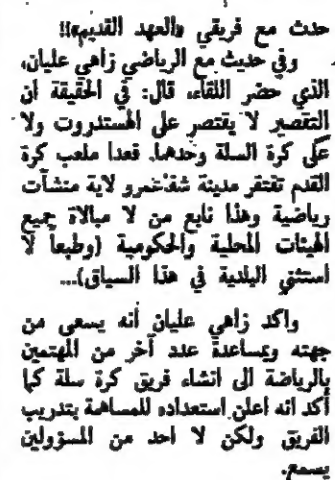 حدث مع فريقي «العهد القديم»!!
وفي حديث مع الرياضي زاهي عليان،
الذي حضر اللقاء، قال: في الحقيقة ان
التقصير لا يقتصر على الهستدروت ولا
على كرة السلة وحدها. فعدا ملعب كرة
القدم تفتقر مدينة شفاعمرو لاية منشآت
رياضية وهذا نابع من لا مبالاة جميع
الهيئات المحلية والحكومية (وطبعاً لا
استثني البلدية في هذا السياق)...
واكد زاهي عليان أنه يسعى من
جهته وبمساعدة عدد آخر من المهتمين
بالرياضة الى انشاء فريق كرة سلة كما
أكد انه اعلن استعداده للمساهمة بتدريب
الفريق ولكن لا احد من المسؤولين
يسمع.